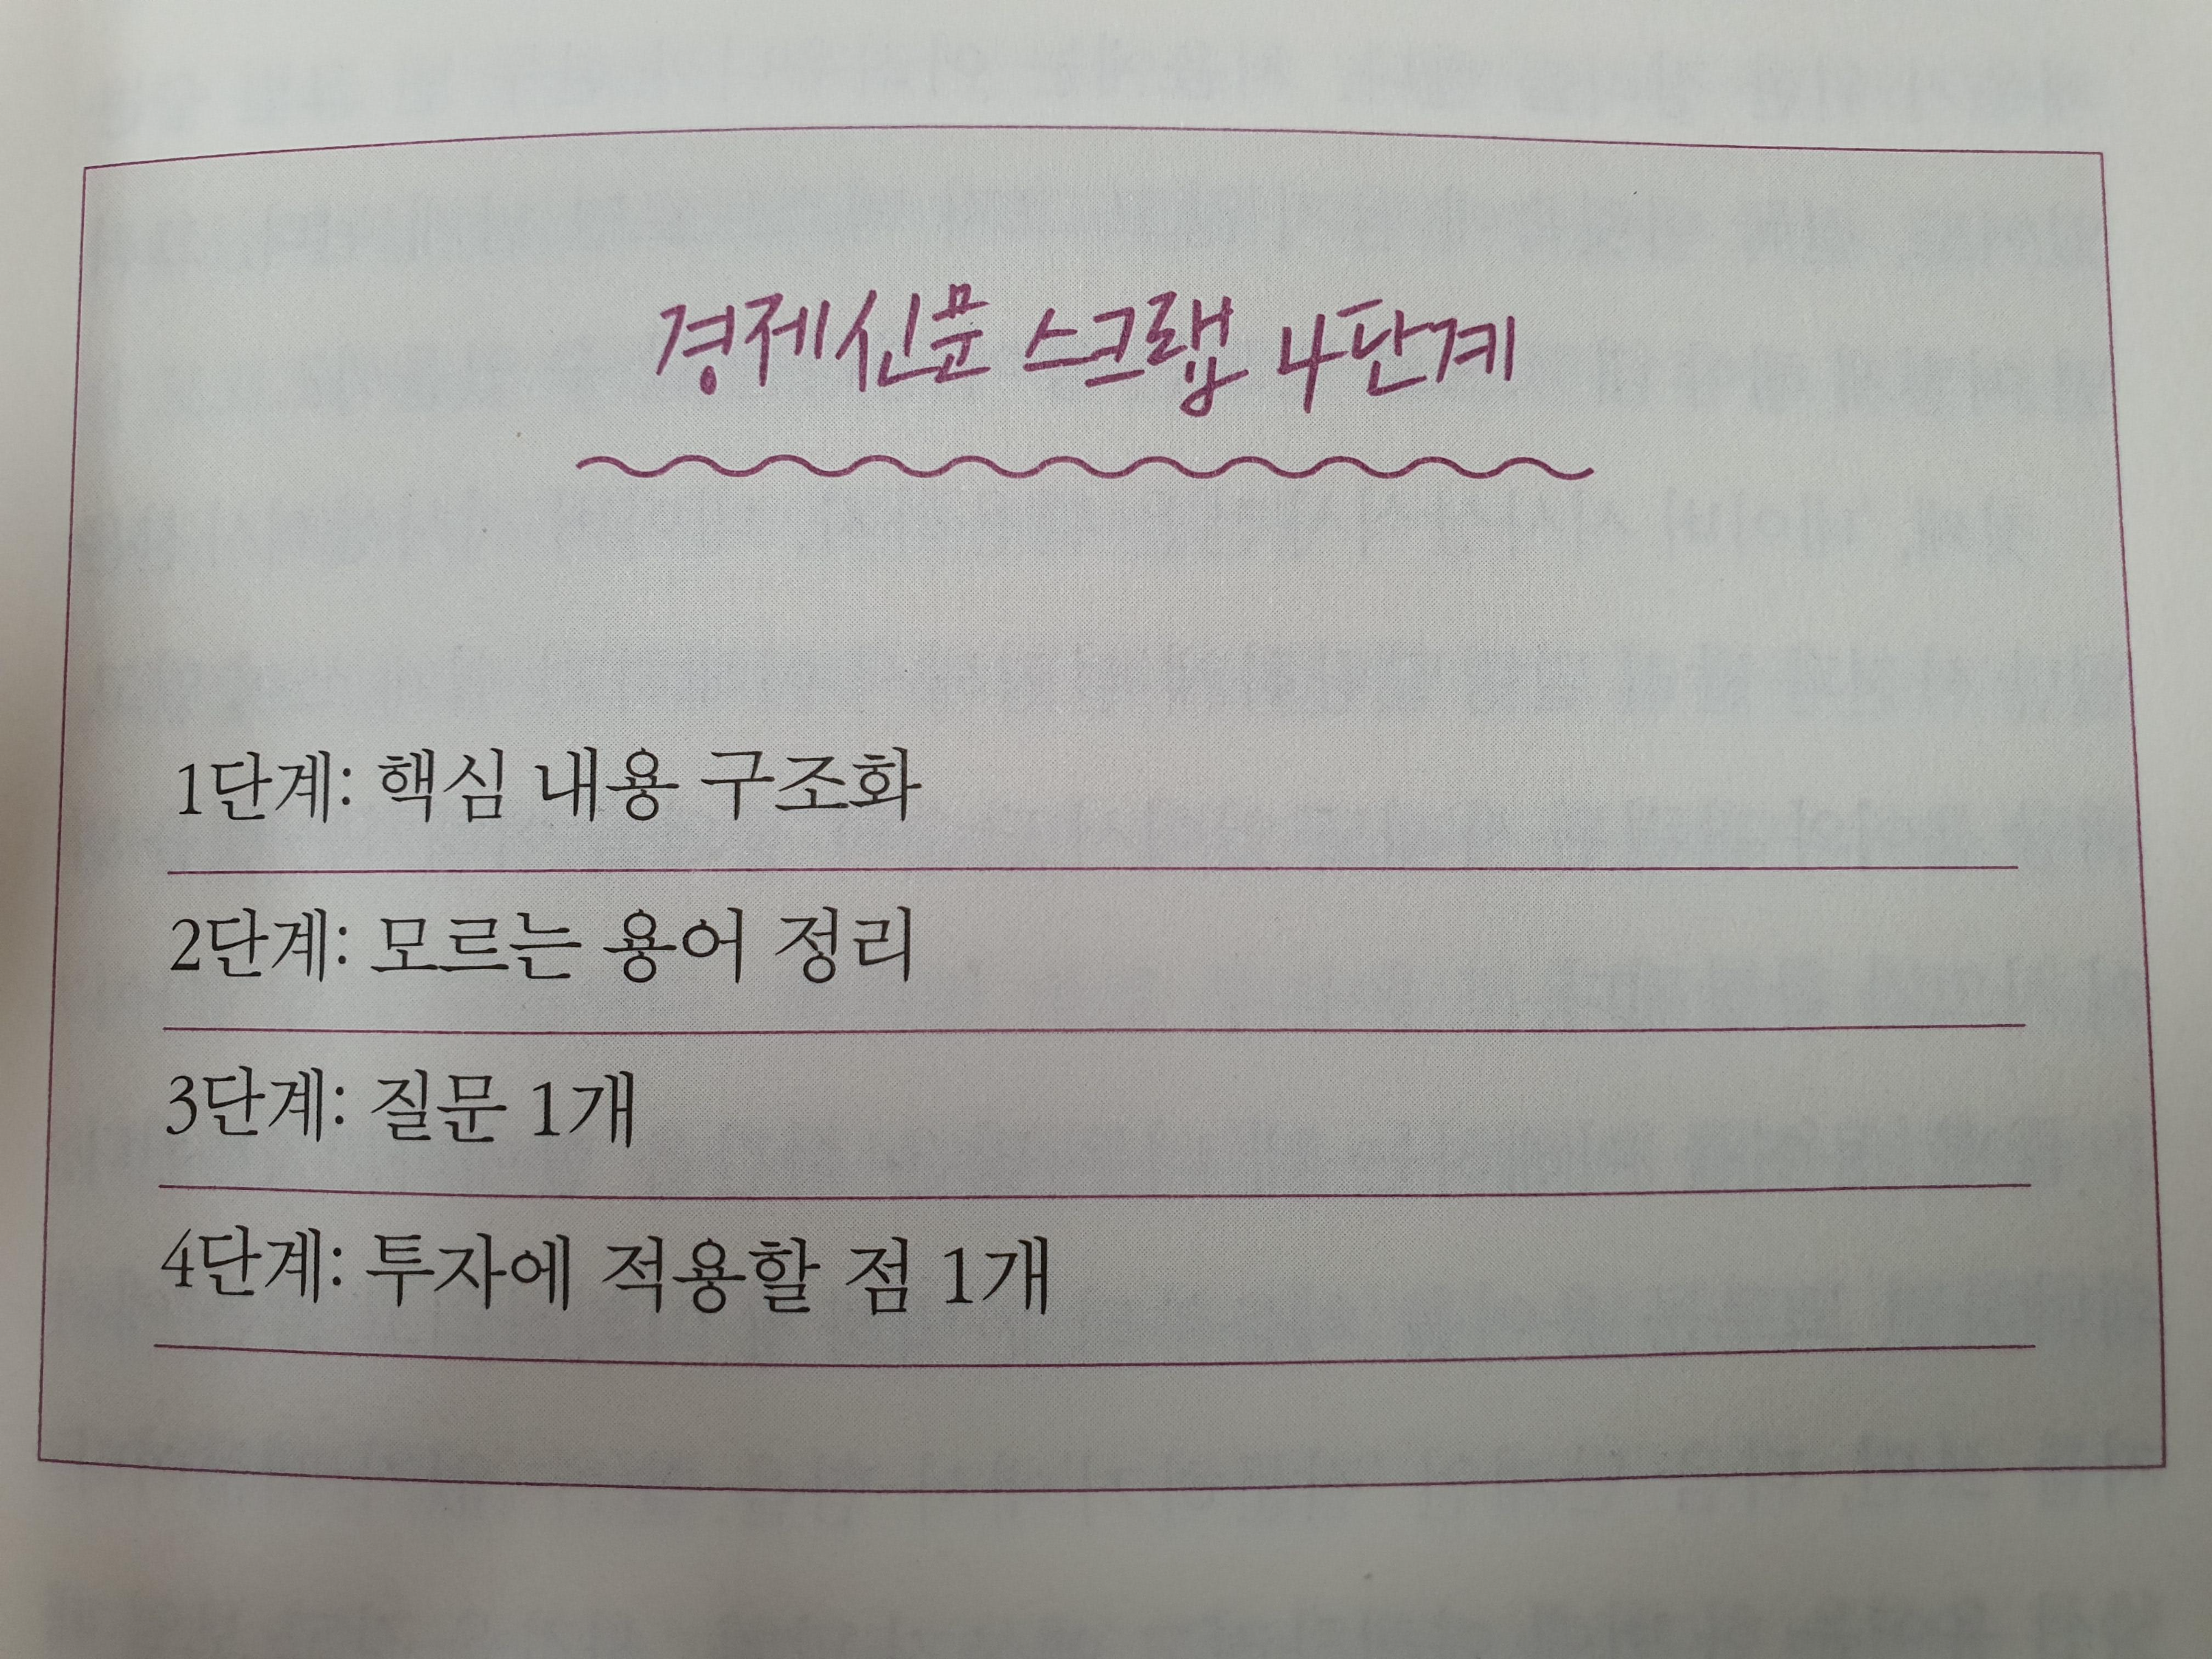 경제신문 스크랩 4단계
1단계: 핵심 내용 구조화
2단계: 모르는 용어 정리
3단계: 질문 1개
4단계: 투자에 적용할 점 1개